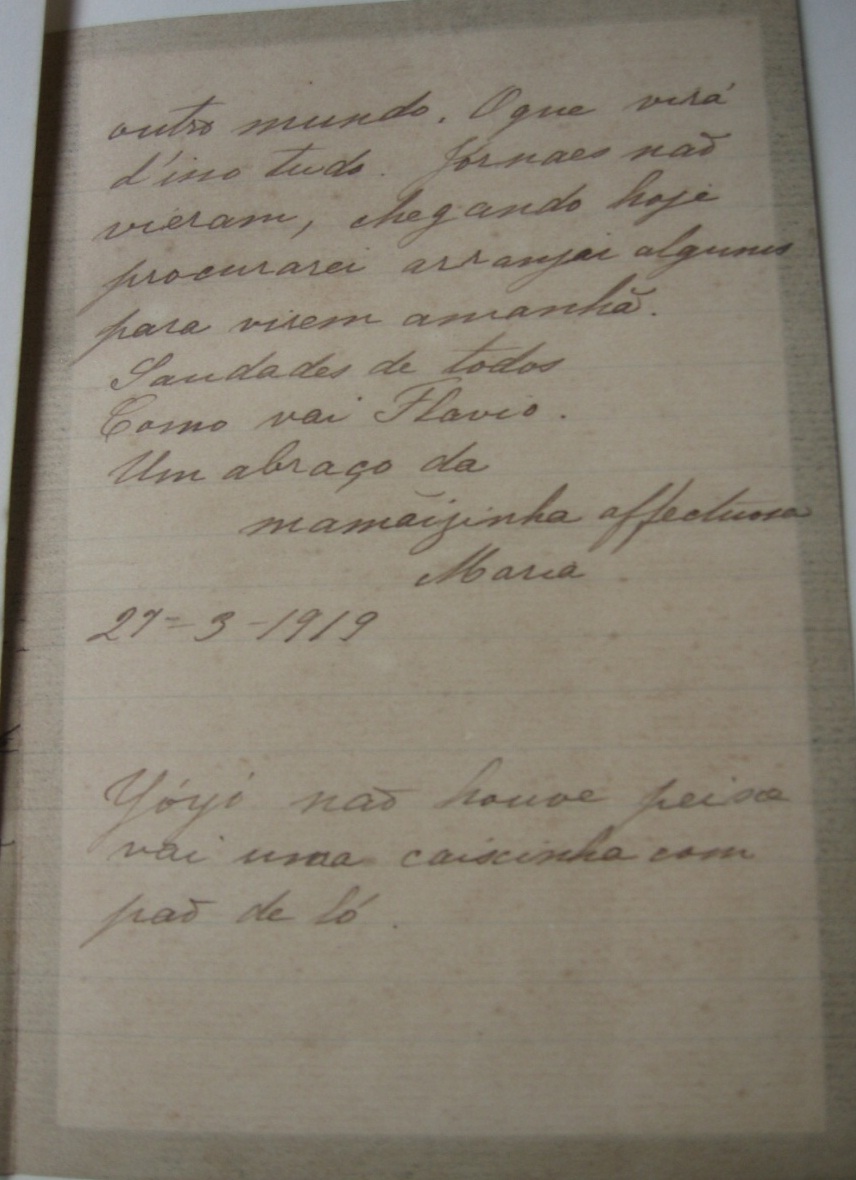 outro mundo. O que virá
d'isso tudo. Jornaes naõ
vieram, chegando hoje
procurarei arranjar alguns
para virem amanhã.
Saudades de todos
Como vai Flavio.
Um abraço da
mamãizinha affectuosa
Maria
27-3-1919
Yóyó naõ houve peixe
vai uma caixinha com
paõ de ló.